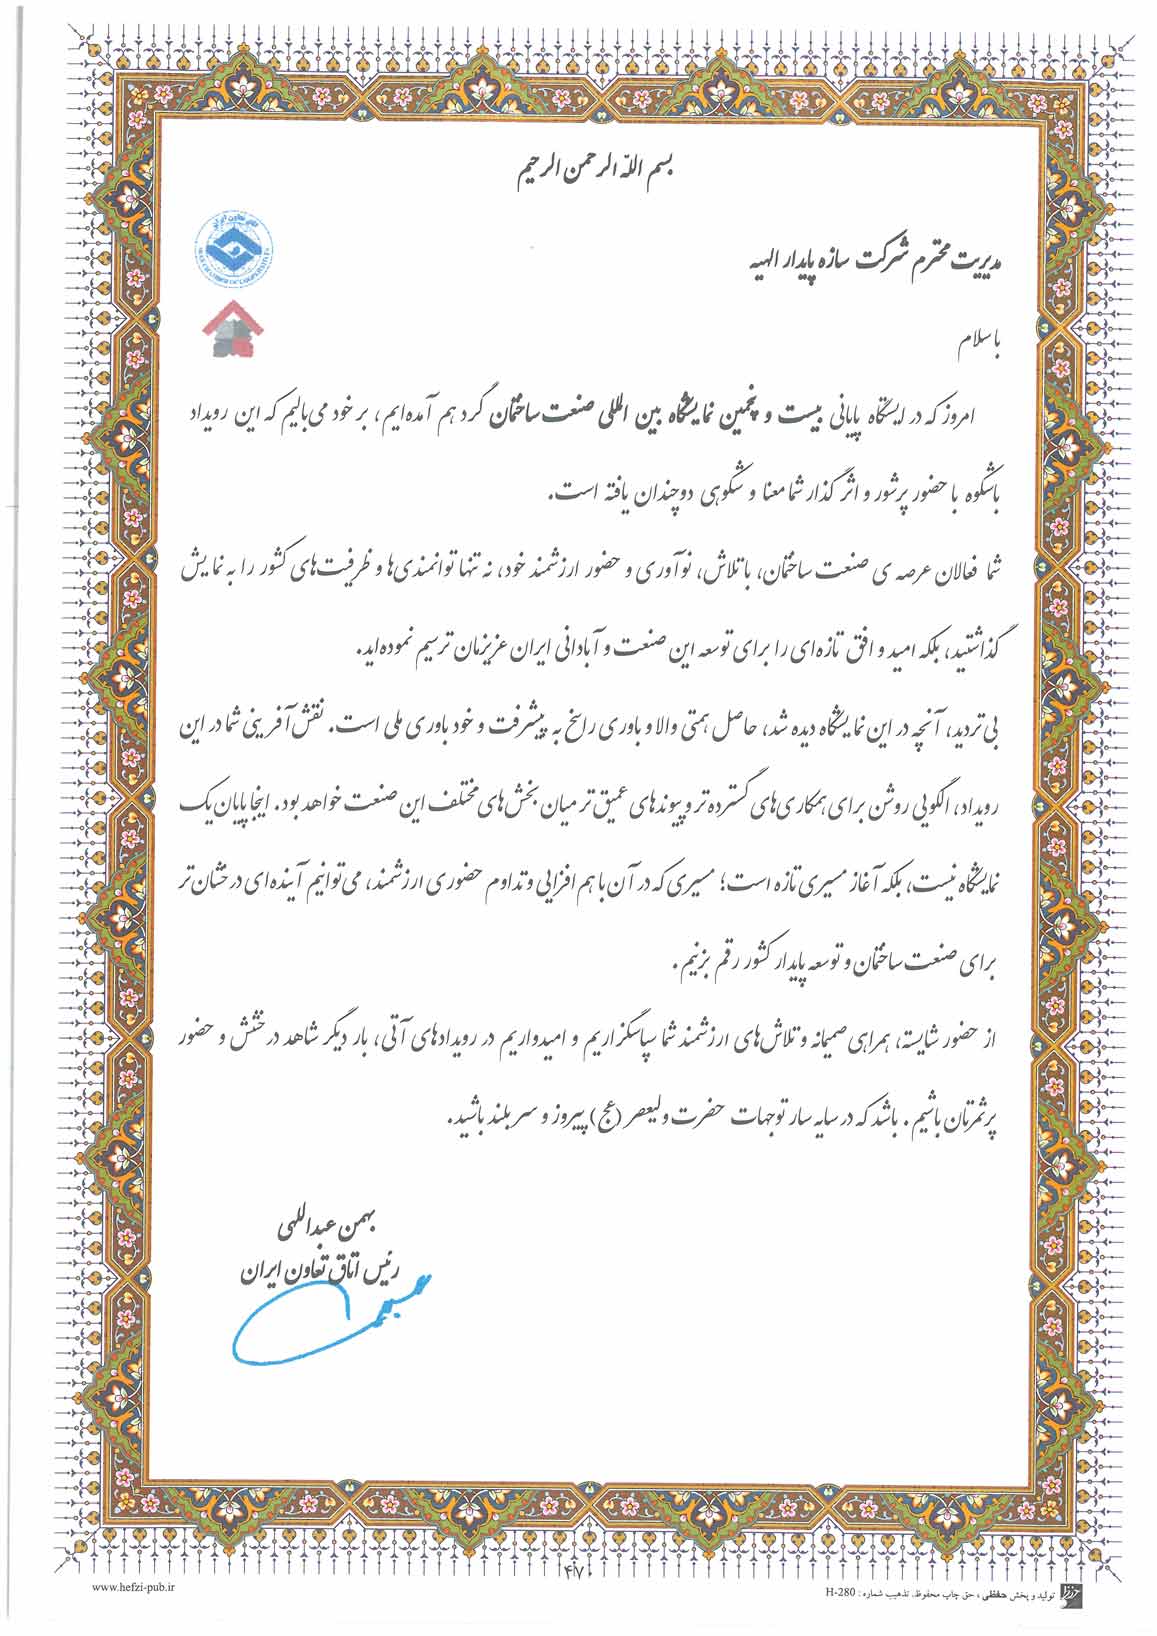 بسم الله الرحمن الرحیم
مدیریت محترم شرکت سازه پایدار الهیه
با سلام
امروز که در ایستگاه پایانی بیست و پنجمین نمایشگاه بین المللی صنعت ساختمان گرد هم آمده‌ایم، بر خود می‌بالیم که این رویداد
باشکوه با حضور پرشور و اثر گذار شما معنا و شکوهی دوچندان یافته است.
شما فعالان عرصه ی صنعت ساختمان، با تلاش، نوآوری و حضور ارزشمند خود، نه تنها توانمندی‌ها و ظرفیت‌های کشور را به نمایش
گذاشتید، بلکه امید و افق تازه‌ای را برای توسعه این صنعت و آبادانی ایران عزیزمان ترسیم نموده‌اید.
بی تردید، آنچه در این نمایشگاه دیده شد، حاصل همتی والا و باوری راسخ به پیشرفت و خود باوری ملی است. نقش آفرینی شما در این
رویداد، الگویی روشن برای همکاری‌های گسترده تر و پیوندهای عمیق تر میان بخش‌های مختلف این صنعت خواهد بود. اینجا پایان یک
نمایشگاه نیست، بلکه آغاز مسیری تازه است؛ مسیری که در آن با هم افزایی و تداوم حضوری ارزشمند، می‌توانیم آینده‌ای درخشان تر
برای صنعت ساختمان و توسعه پایدار کشور رقم بزنیم.
از حضور شایسته، همراهی صمیمانه و تلاش‌های ارزشمند شما سپاسگزاریم و امیدواریم در رویدادهای آتی، بار دیگر شاهد درخشش و حضور
پرثمرتان باشیم. باشد که در سایه سار توجهات حضرت ولیعصر (عج) پیروز و سربلند باشید.
بهمن عبداللهی
رئیس اتاق تعاون ایران
۴۷۰
www.hefzi-pub.ir
تولید و پخش حفظی، حق چاپ محفوظ. تذهیب شماره: H-280